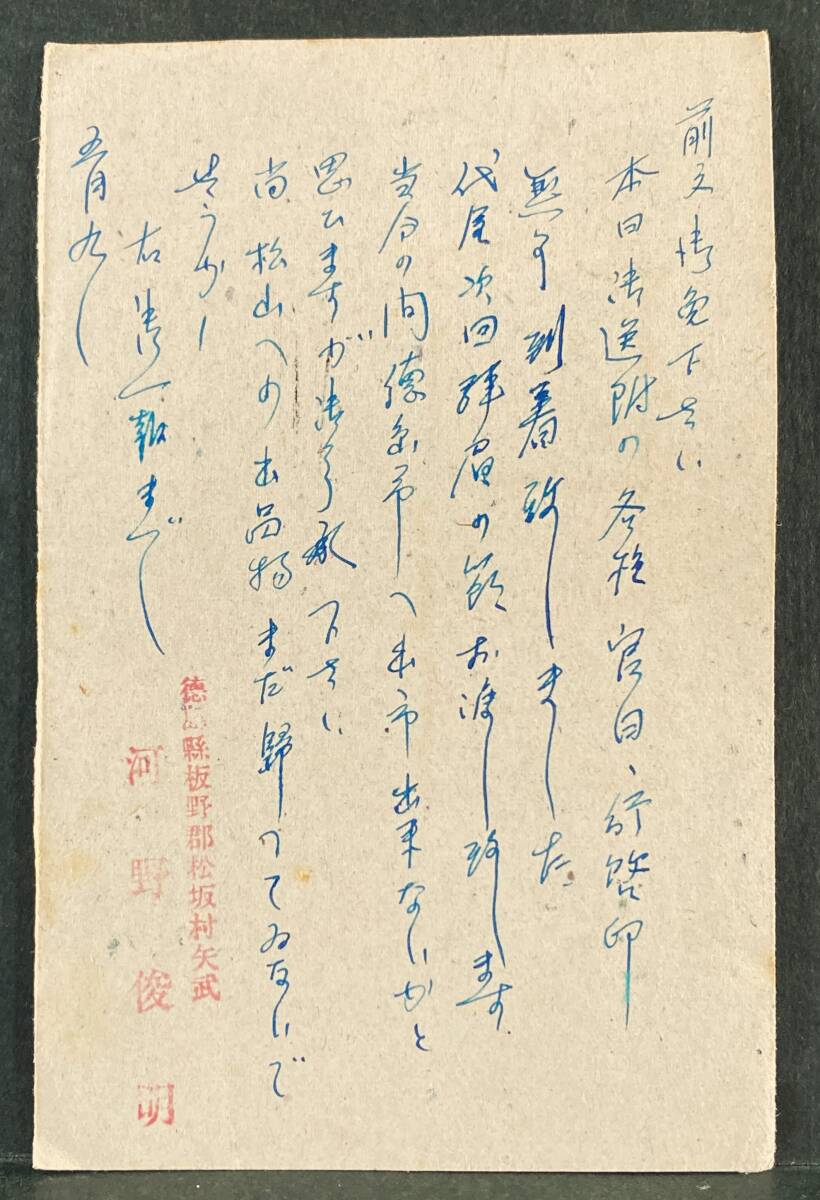 前文御免下さい
本日御送附の各種官白、行啓印
無事到着致しました
代金次回拝眉の節お渡し致します
当分の間徳島市へ出市出来ないかと
思ひますが御了承下さい
尚松山への出品物まだ歸ってゐないで
せうか
右御一報まで
五月九日
徳島縣板野郡松坂村矢武
河野俊明